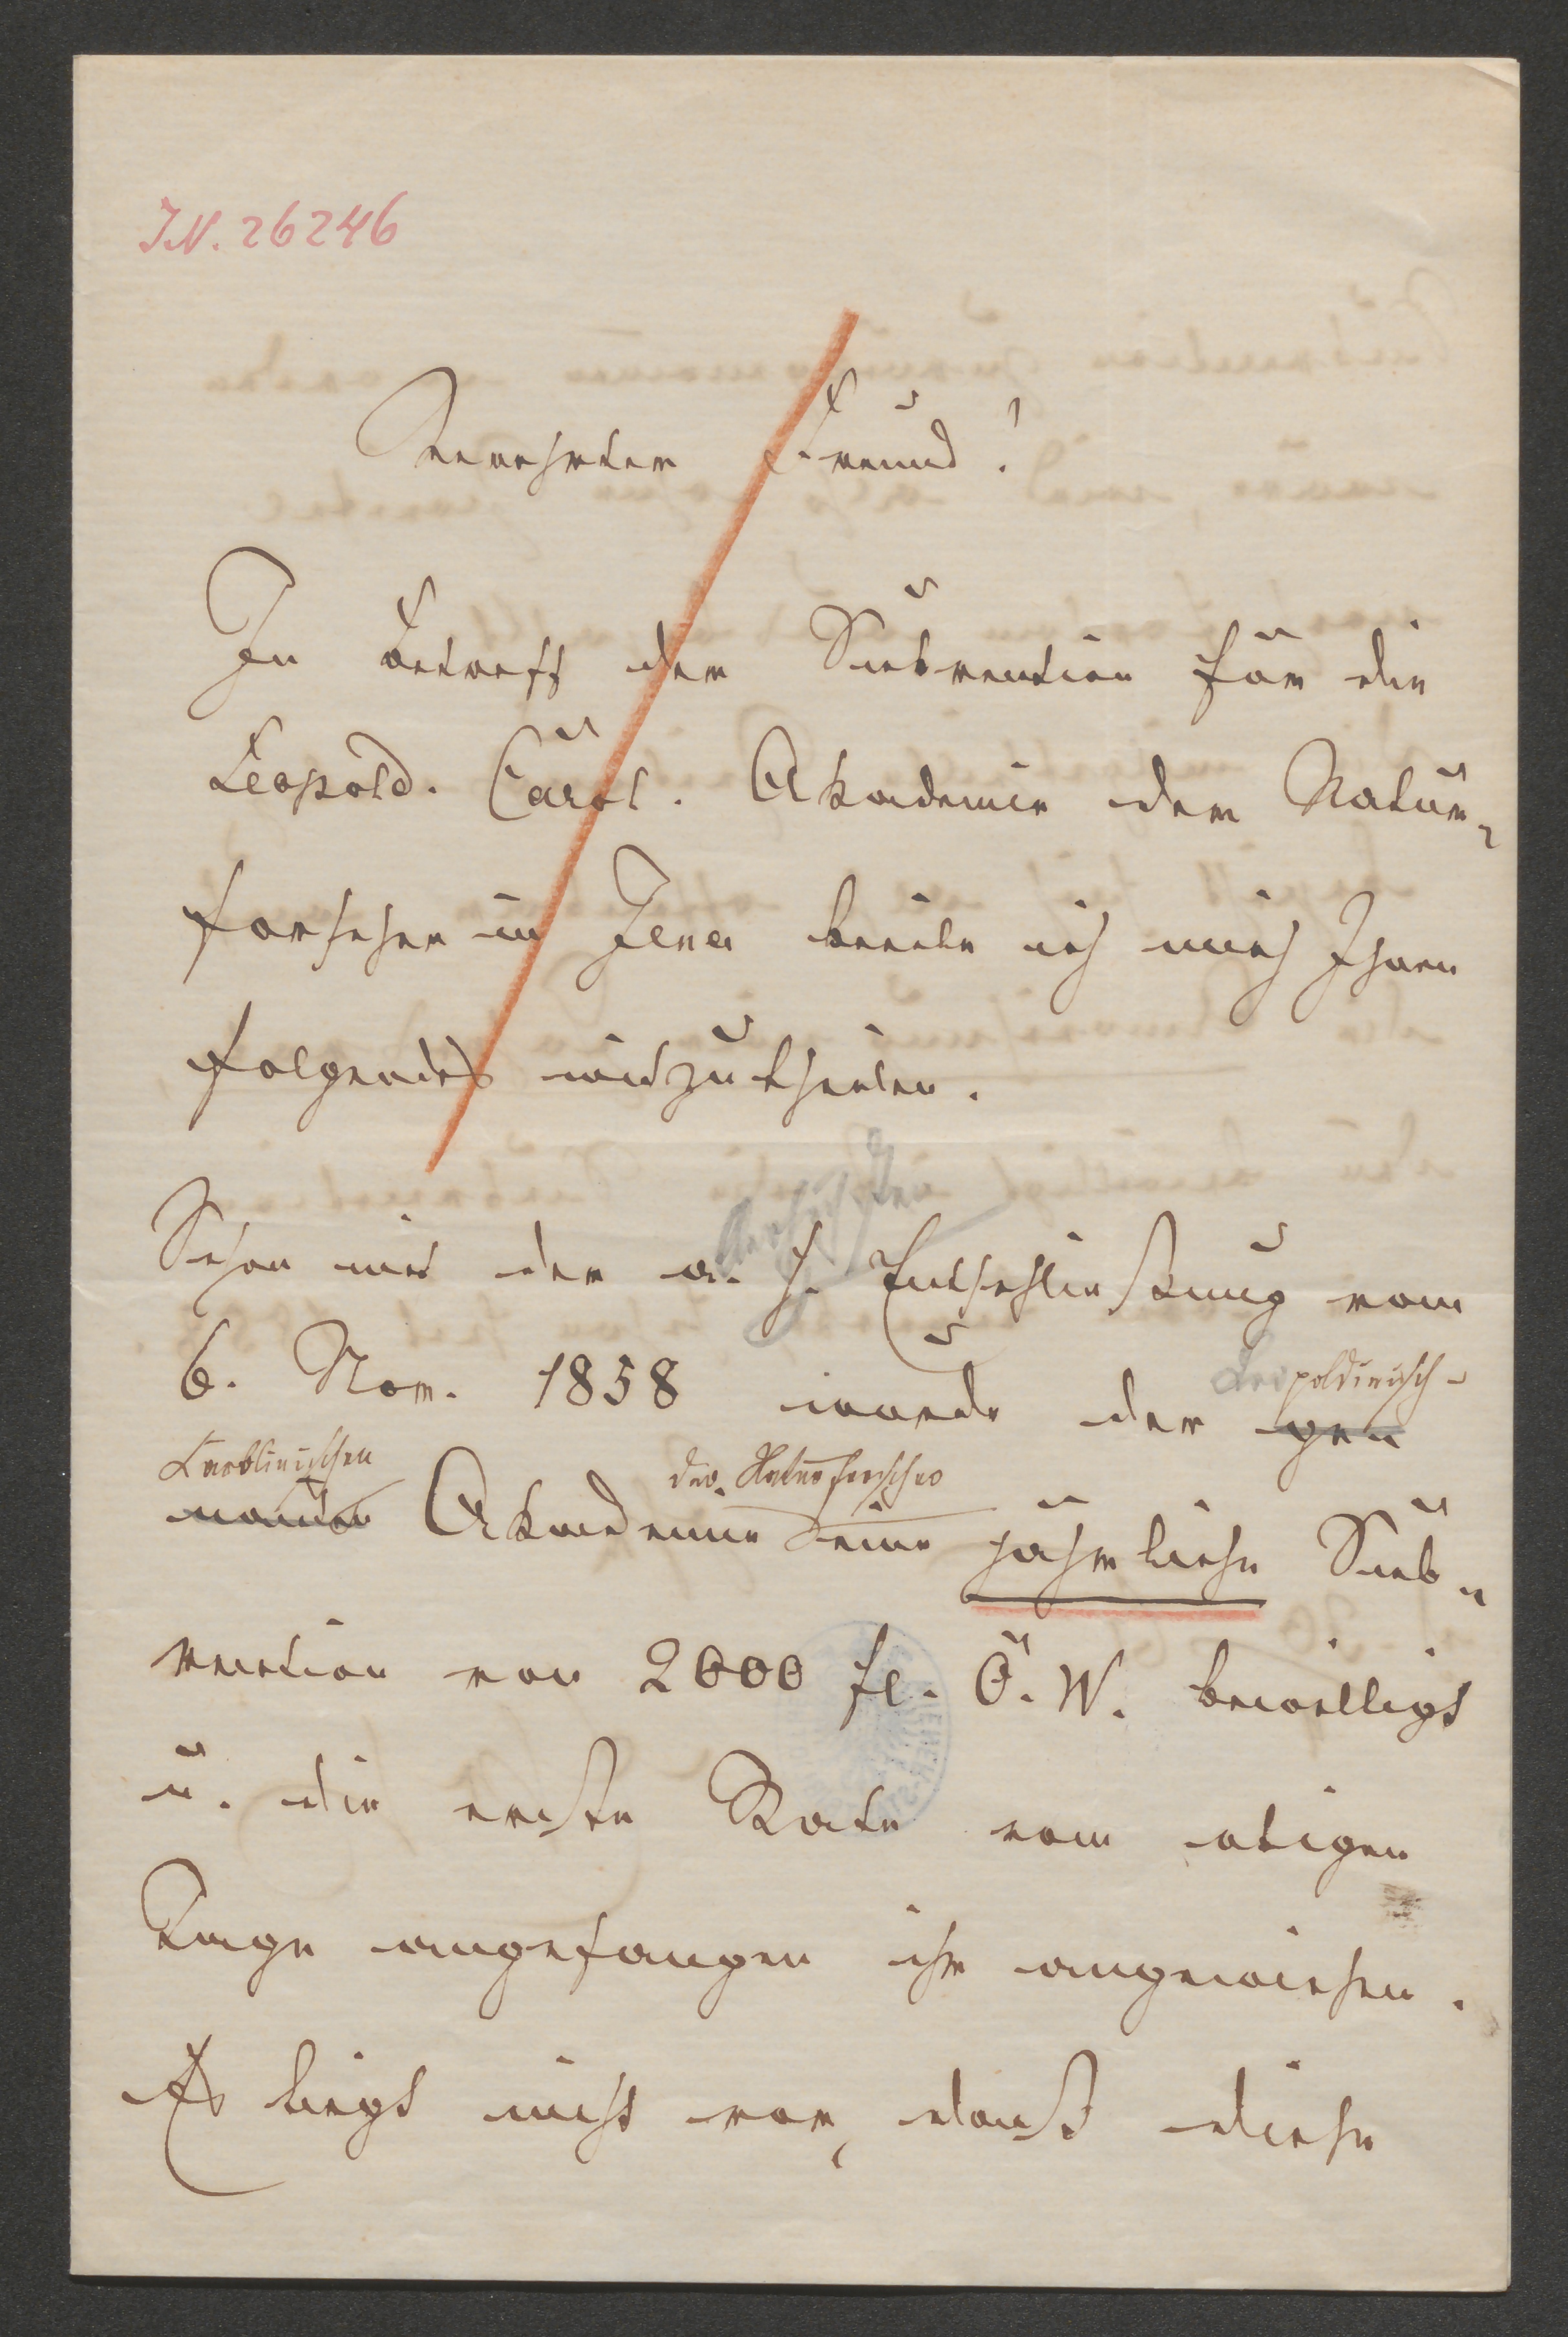 IN. 26246
Verehrter Freund!
In Betreff der Subvention für die
Leopold. Carol. Akademie der Natur-
forscher in Jena beeile ich mich Ihnen
folgendes mitzutheilen.
Allerhöchsten
Schon mit der a. h. Entschließung vom
6. Nov. 1858 wurde der gen
Leopoldinisch-
Karolinischen
der Naturforscher
nannten Akademie eine jährliche Sub-
vention von 2000 fl. Ö. W. bewilligt
u. die erste Rate vom obigen
Tage angefangen ihr angewiesen.
Es liegt nicht vor, daß diese